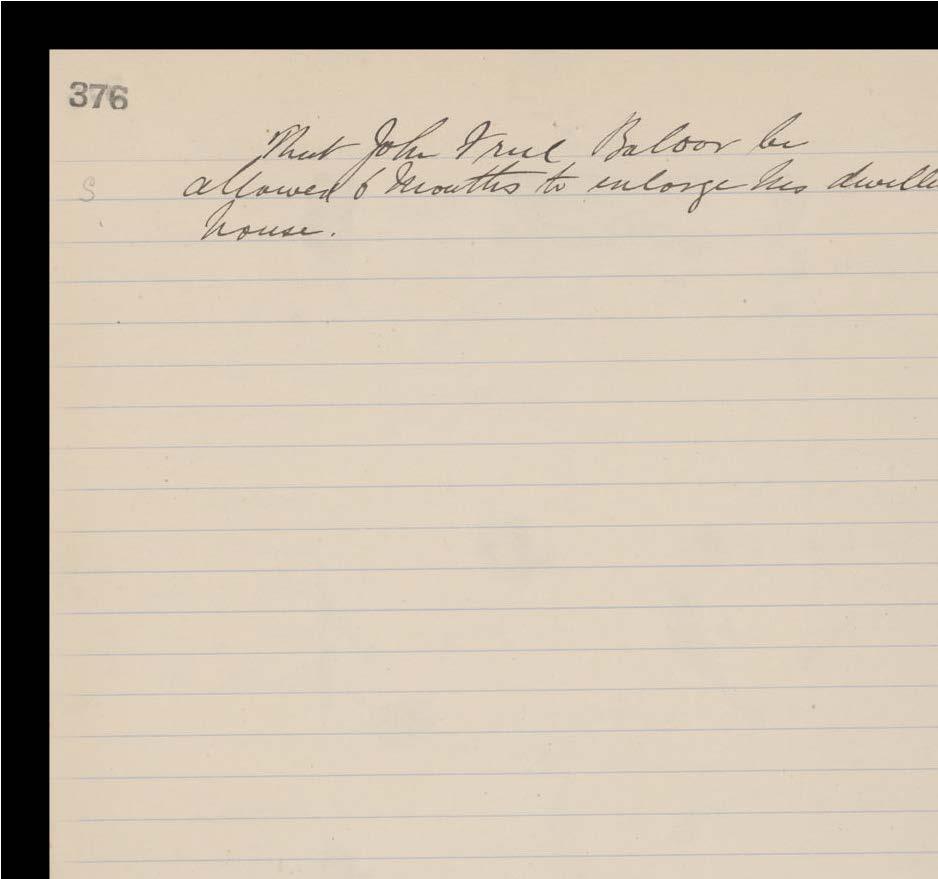 376
That John Friel Baloor be
S
allowed 6 Months to enlarge his dwelli
house.